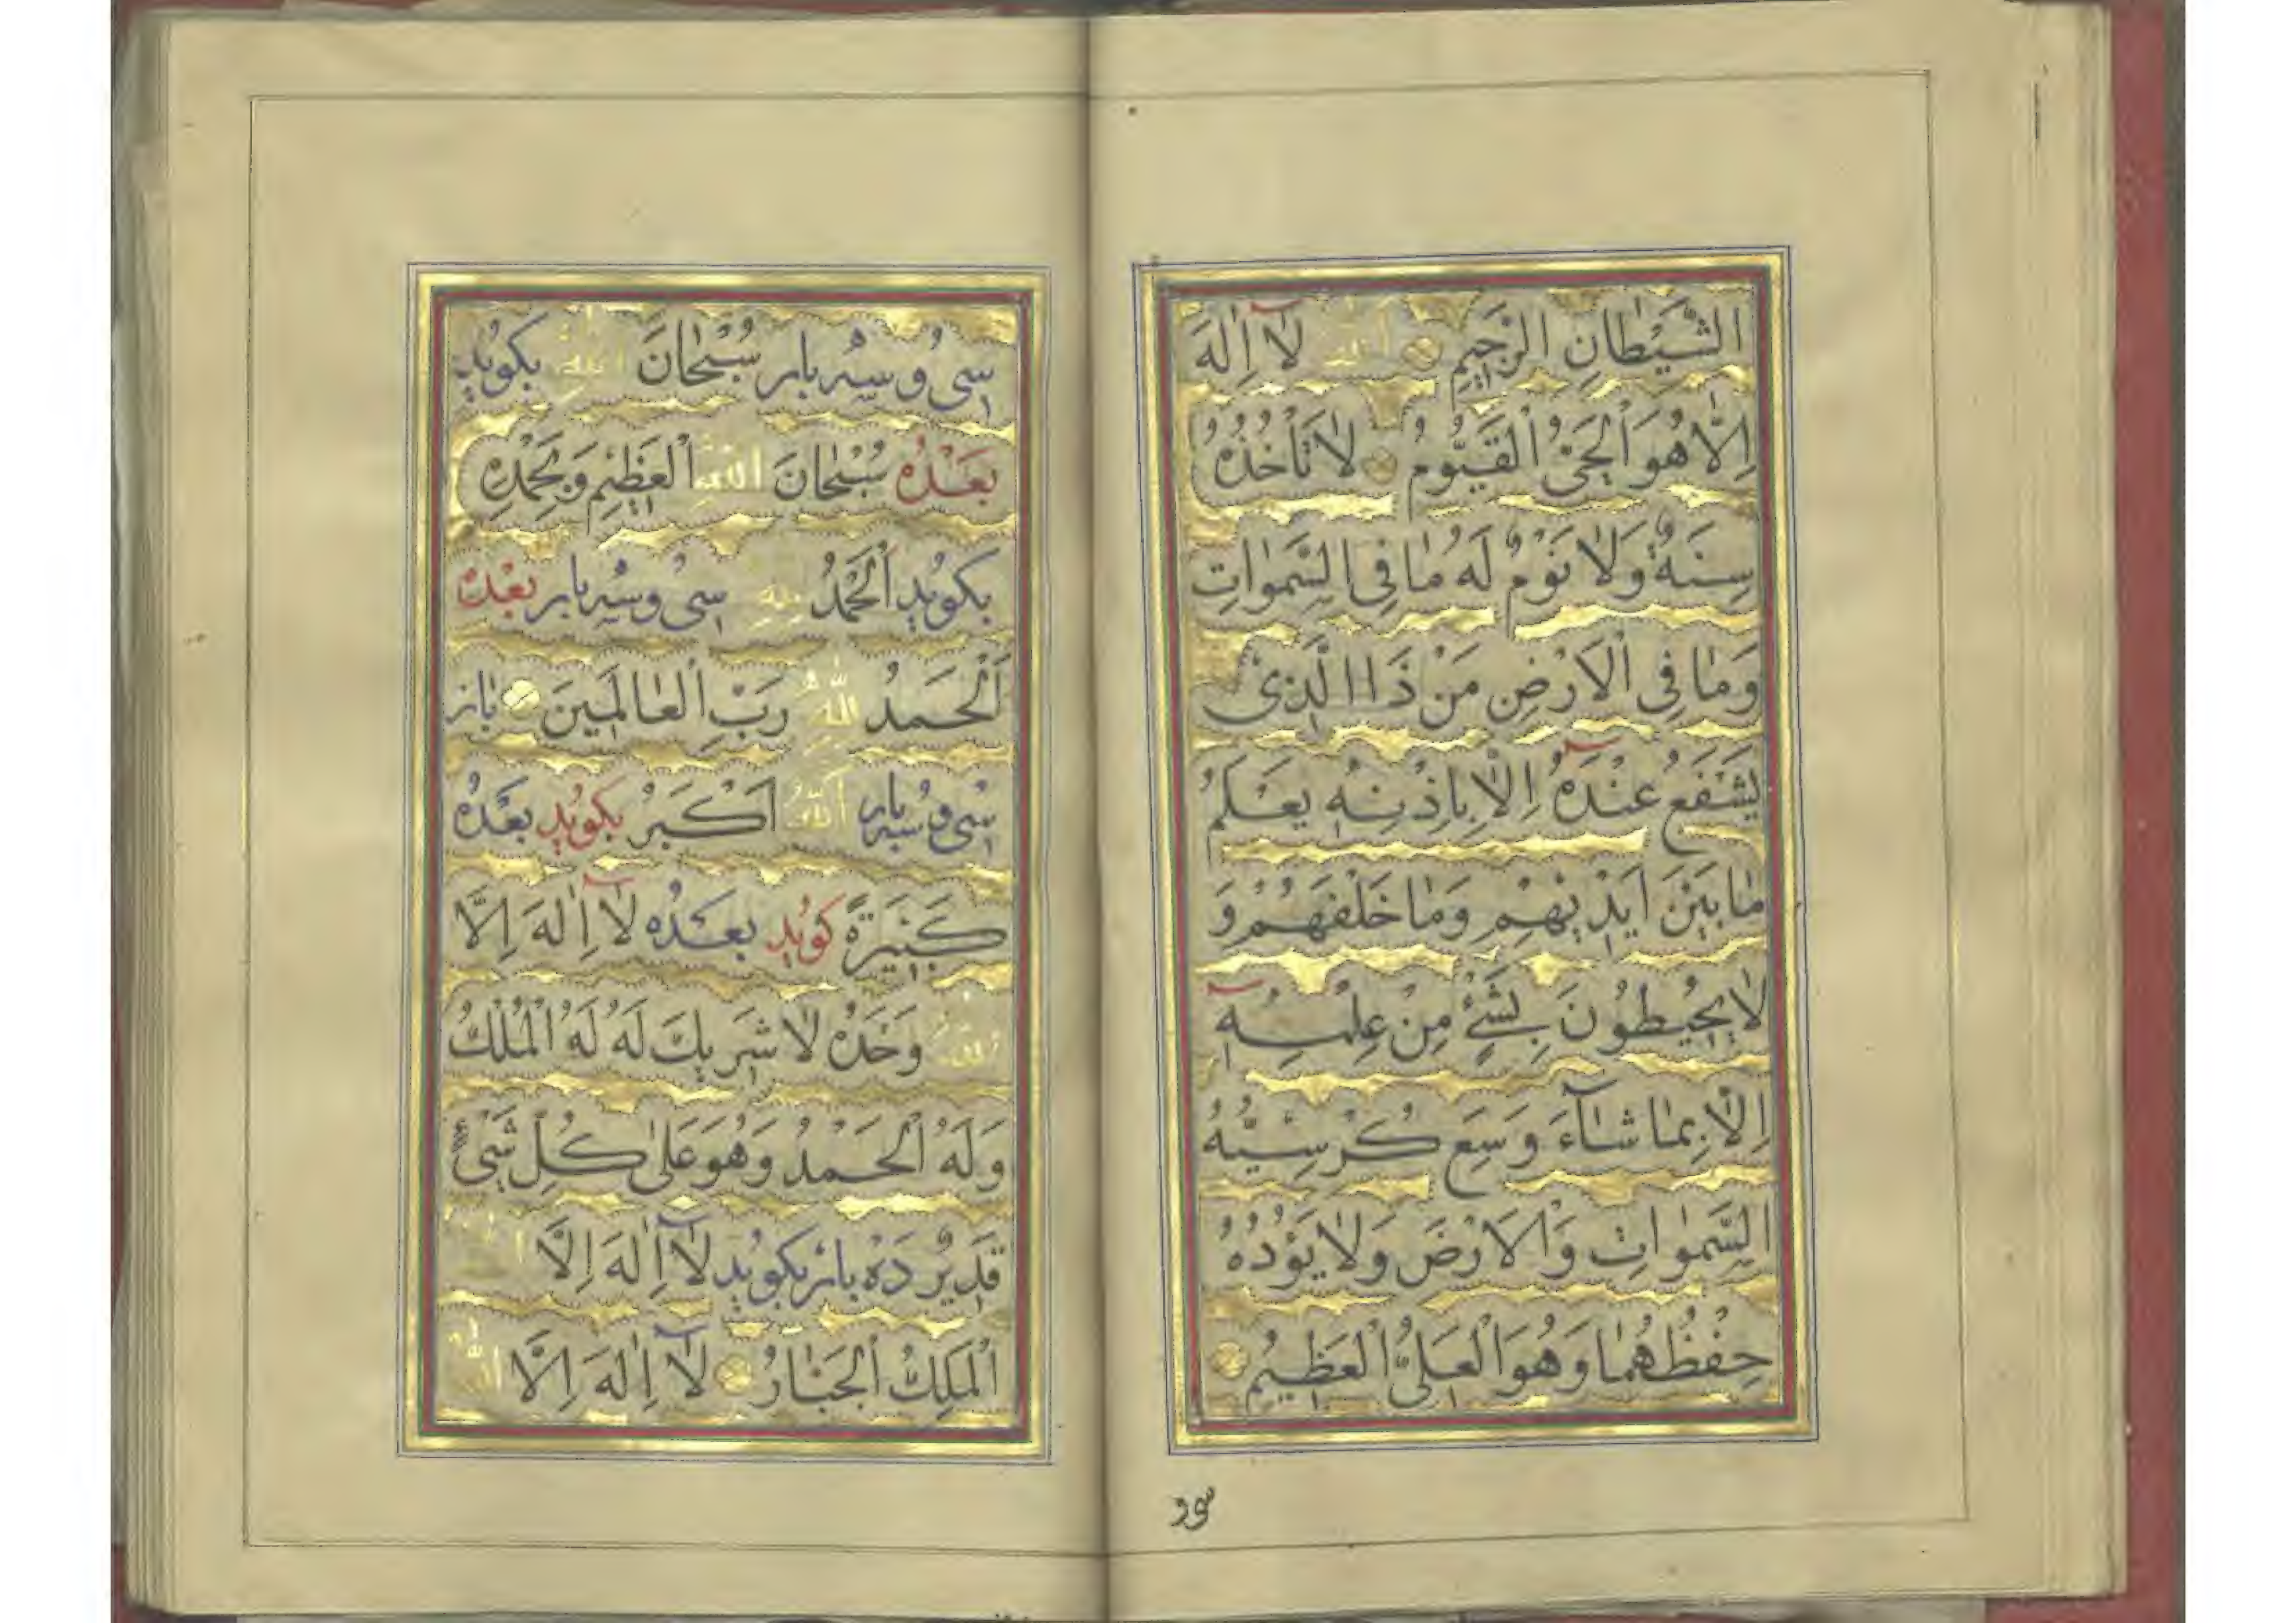 الشَّيْطَانِ الرَّجِيمِ اَللهُ لَآ اِلٰهَ
اِلَّا هُوَ اَلْحَيُّ اَلْقَيُّومُ لَا تَأْخُذُهُ
سِنَةٌ وَلَا نَوْمٌ لَهُ مَا فِي السَّمٰوَاتِ
وَمَا فِي اْلاَرْضِ مَنْ ذَا الَّذِي
يَشْفَعُ عِنْدَهُٓ اِلَّا بِاِذْنِهٖ يَعْلَمُ
مَا بَيْنَ اَيْدِيْهِمْ وَمَا خَلْفَهُمْ وَ
لَا يُحِيْطُوْنَ بِشَيْءٍ مِنْ عِلْمِهٖٓ
اِلَّا بِمَا شَآءَ وَسِعَ كُرْسِيُّهُ
السَّمٰوَاتِ وَاْلاَرْضَ وَلَا يَؤُدُهُ
حِفْظُهُمَا وَهُوَ الْعَلِيُّ الْعَظِيْمُ
سی و
سِی وُ سِهْ بار سُبْحَانَ اللهِ بکوید
بَعْدَهُ سُبْحَانَ اللهِ الْعَظِيْمِ وَبِحَمْدِهِ
بکوید اَلْحَمْدُ لِلهِ سی و سه بار بَعْدَهُ
اَلْحَمْدُ لِلّٰهِ رَبِّ الْعَالَمِيْنَ باز
سی و سه بار اَللهُ اَكْبَرُ بکوید بَعْدَهُ
كَبِيْرَةً کوید بَعْدَهُ لَآ اِلٰهَ اِلَّا
اللهُ وَحْدَهُ لَا شَرِيْكَ لَهُ لَهُ الْمُلْكُ
وَلَهُ الْحَمْدُ وَهُوَ عَلٰى كُلِّ شَيْءٍ
قَدِيْرٌ دَهْ بار بکوید لَآ اِلٰهَ اِلَّا اللهُ
اَلْمَلِكُ الْجَبَّارُ لَآ اِلٰهَ اِلَّا اللهُ